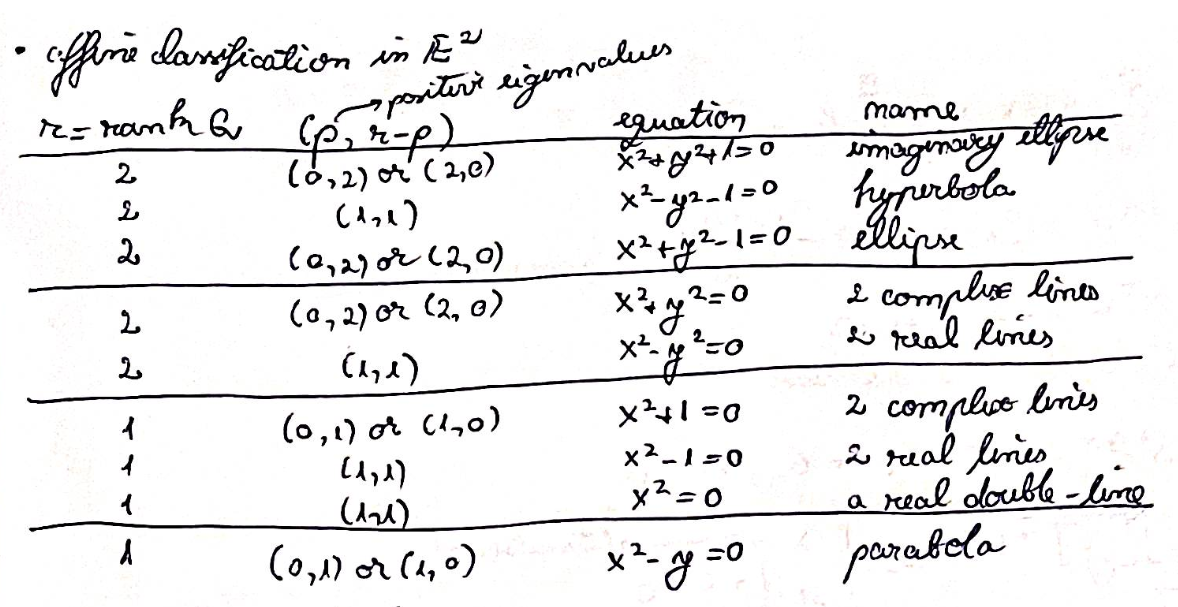 • affine classification in E²
→ positive eigenvalues
r = rank Q (p, r-p) equation name
2 (0,2) or (2,0) x²+y²+1=0 imaginary ellipse
2 (1,1) x²-y²-1=0 hyperbola
2 (0,2) or (2,0) x²+y²-1=0 ellipse
2 (0,2) or (2,0) x²+y²=0 2 complex lines
2 (1,1) x²-y²=0 2 real lines
1 (0,1) or (1,0) x²+1=0 2 complex lines
1 (1,1) x²-1=0 2 real lines
1 (1,1) x²=0 a real double-line
1 (0,1) or (1,0) x²-y=0 parabola